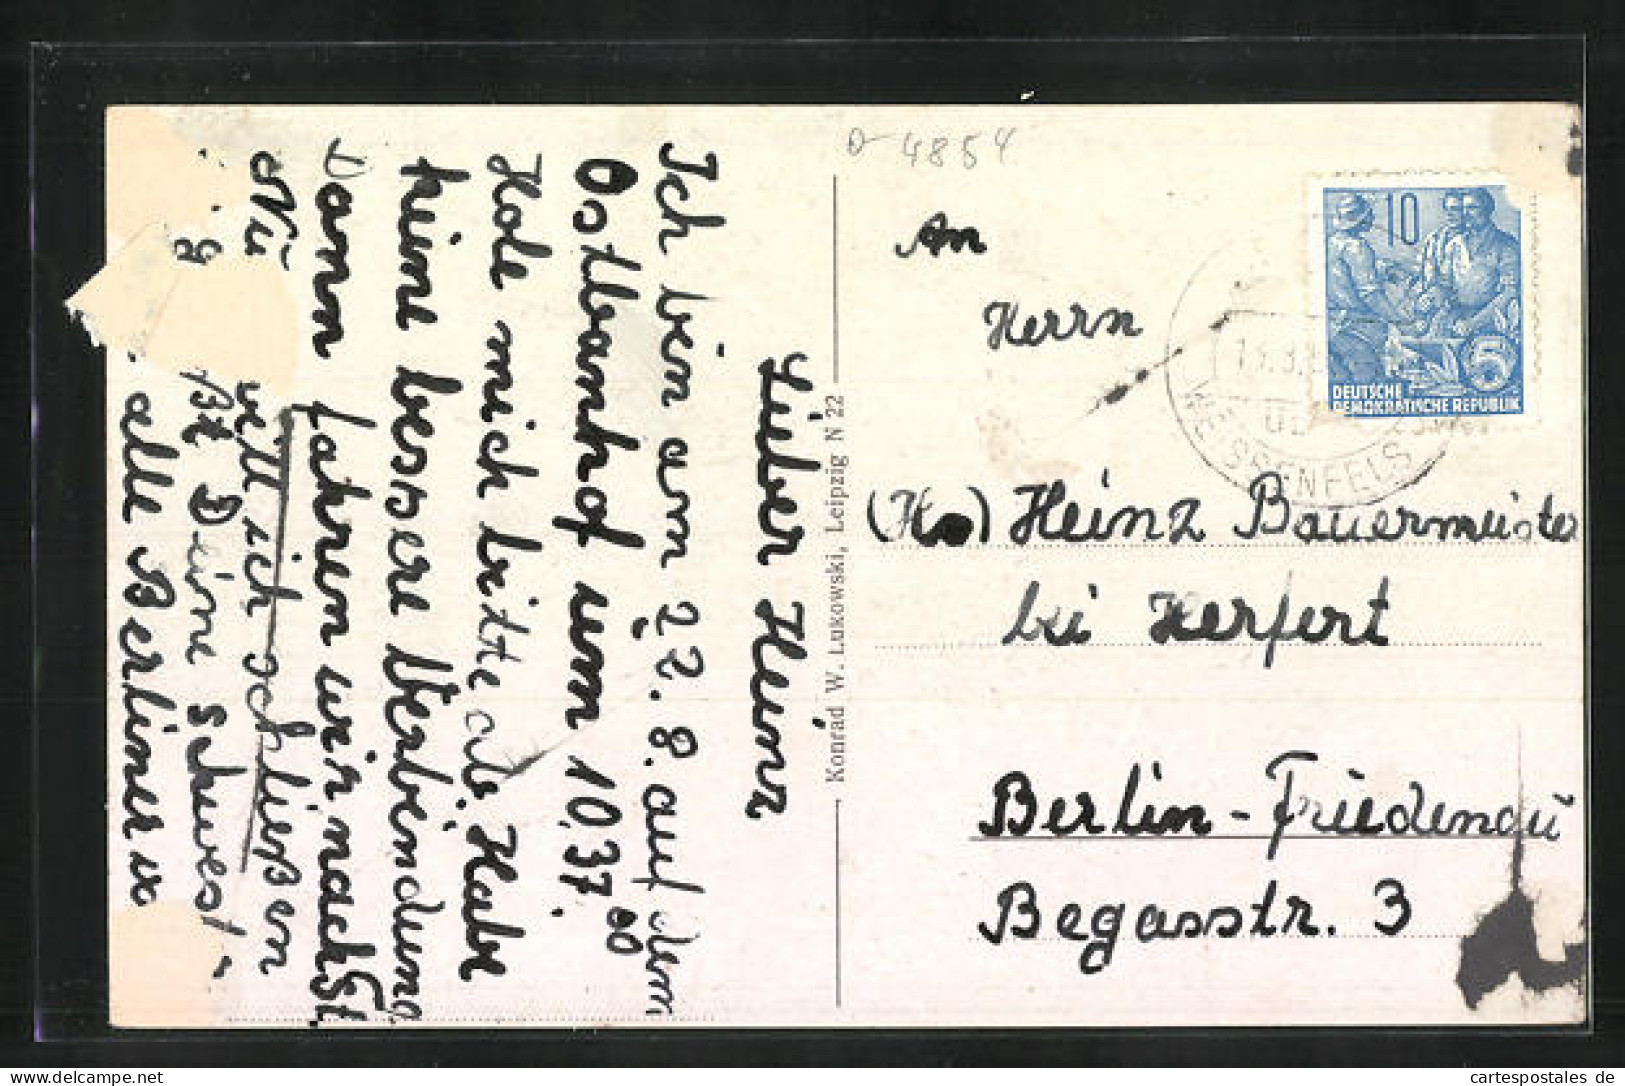 Lieber Heinz
Ich bin am 22.8. auf dem
Ostbanhof um 10.37 00
Hole mich bitte ab. Habe
keine bessere Verbindung
Dann fahren wir nach St
Nü will ich schließen
g ßt Deine schwest
alle Berliner
Konrad W. Lukowski, Leipzig N 22
4854
An
Herrn
Heinz Bauermeister
bei Herfert
Berlin-Friedenau
Begasstr. 3
10
5
DEUTSCHE
DEMOKRATISCHE REPUBLIK
WEISSENFELS
cartespostales de